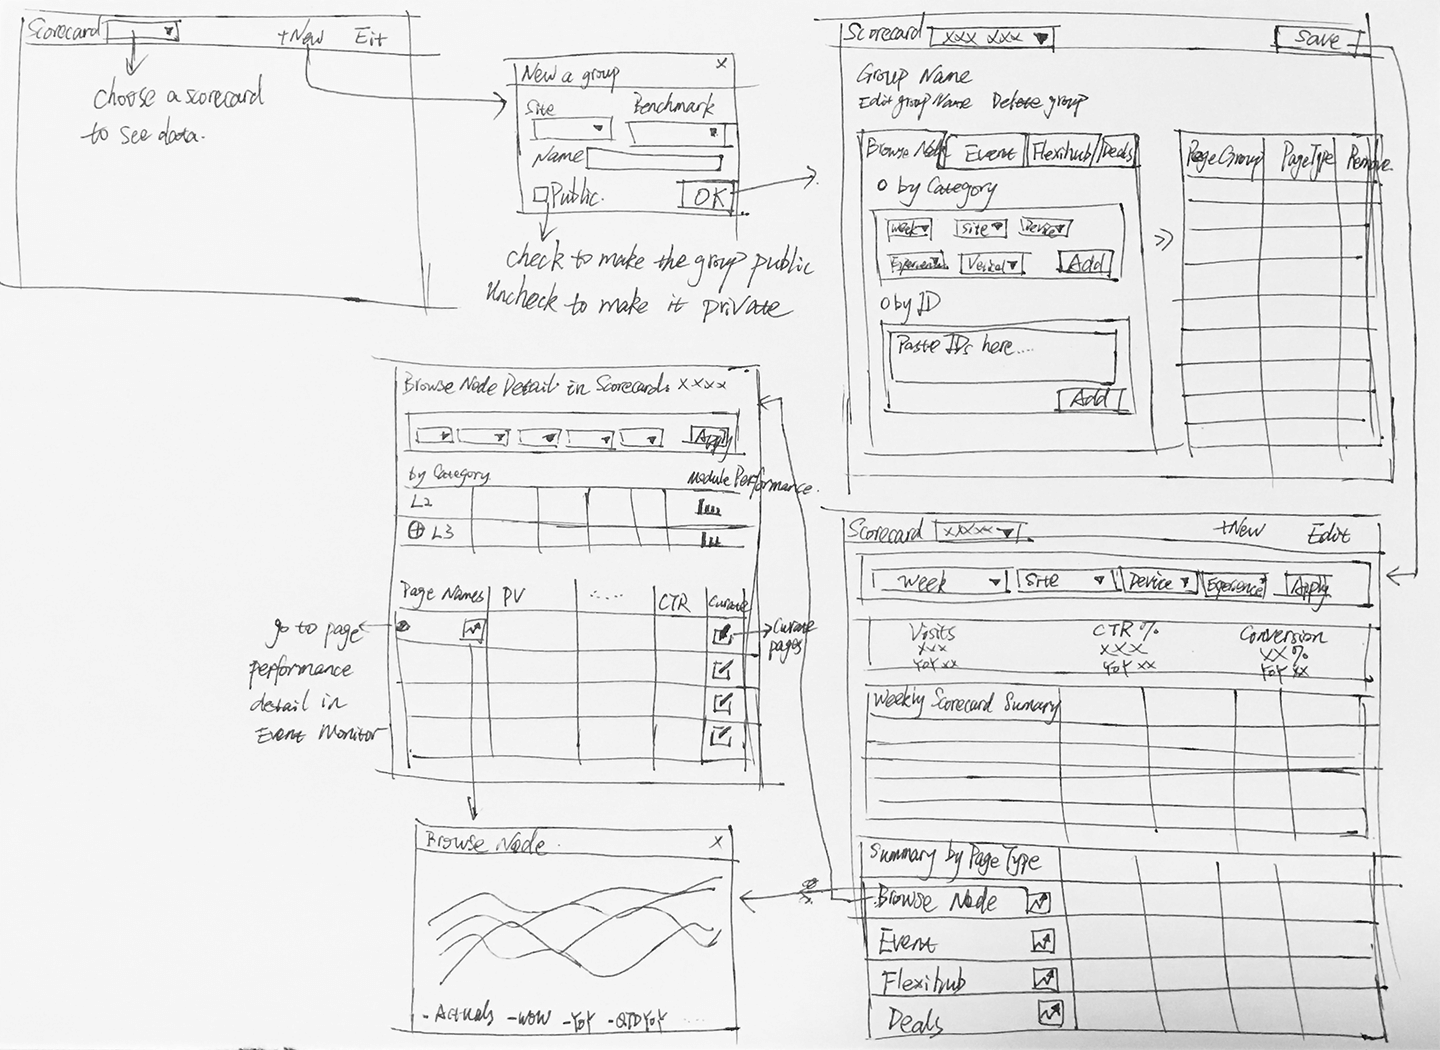 Scorecard
+New Eit
choose a scorecard
to see data.
New a group x
Site Benchmark
Name
Public.
OK
check to make the group public
Uncheck to make it private
Scorecard xxx xxx
Save
Group Name
Edit group Name Delete group
Browse Node Event Flexihub Deals
by Category
Week Site Device
Vesical
Add
by ID
Paste IDs here....
Add
PageGroup PageType Remove
Browse Node Detail in Scorecard xxxx
Apply
by Category Module Performance.
L2
L3
Page Names PV ..... CTR Curate
go to page
performance
detail in
Event Monitor
Curate
pages
Browse Node x
- Actuals - WOW - YOY - QTD YOY
Scorecard xxxx
+New Edit
Week Site Device Experence Apply
Visits CTR % Conversion
xxx xxx xx %
YOY xx YOY xx YOY xx
Weekly Scorecard Sumary
Summary by Page Type
Browse Node
Event
Flexihub
Deals